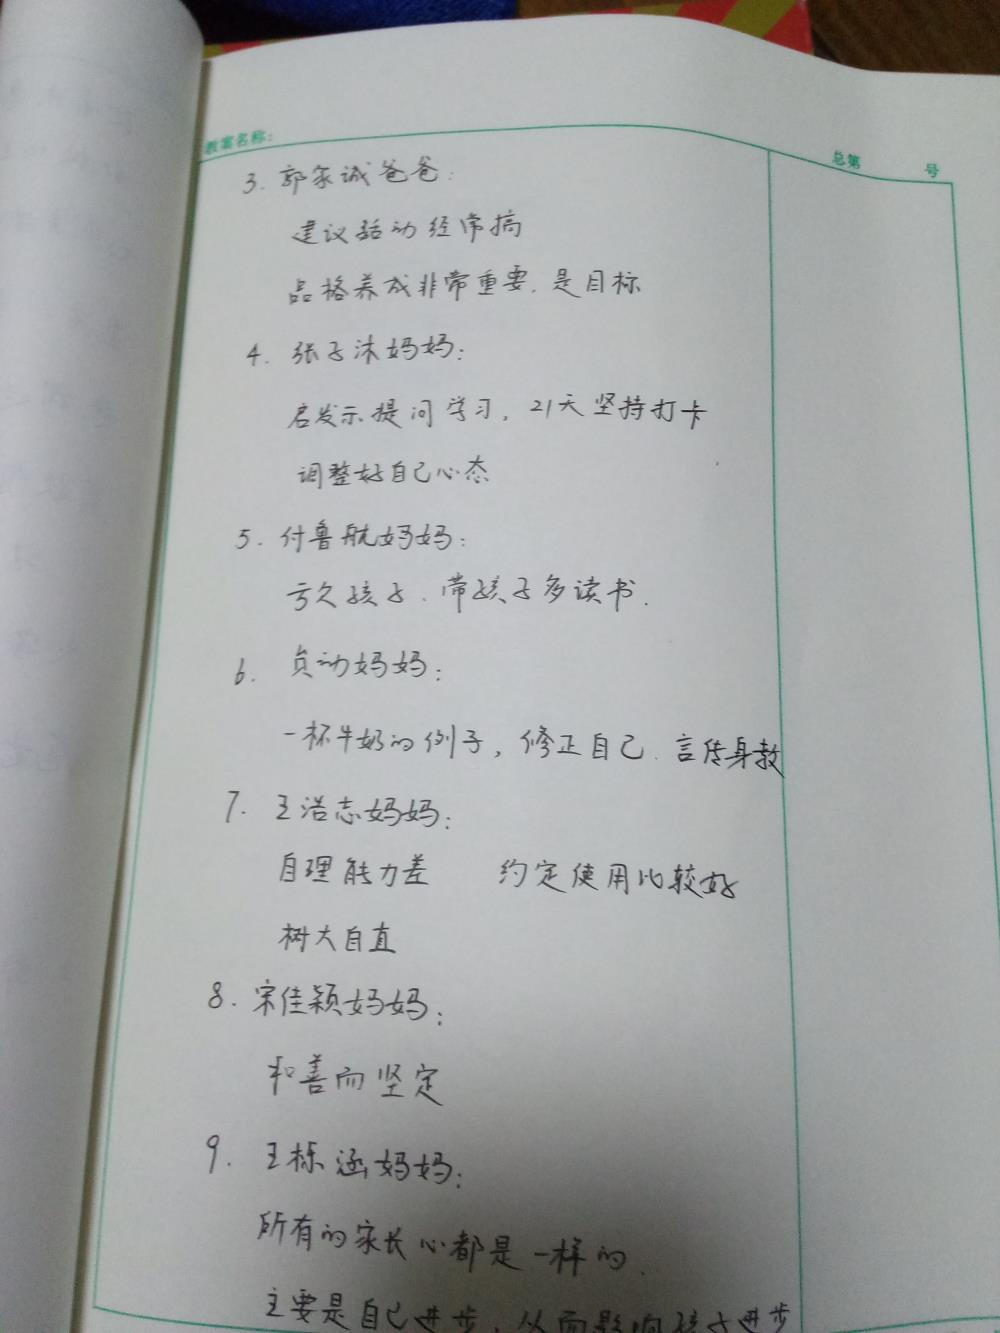 教案名称：
总第 号
3. 郭家诚爸爸：
建议活动经常搞
品格养成非常重要．是目标
4. 张子沐妈妈：
启发示提问学习，21天坚持打卡
调整好自己心态
5. 付鲁航妈妈：
亏欠孩子．带孩子多读书．
6. 贠动妈妈：
一杯牛奶的例子，修正自己．言传身教
7. 王浩志妈妈：
自理能力差 约定使用比较好
树大自直
8. 宋佳颖妈妈：
和善而坚定
9. 王栎涵妈妈：
所有的家长心都是一样的．
主要是自己进步，从而影响孩子进步